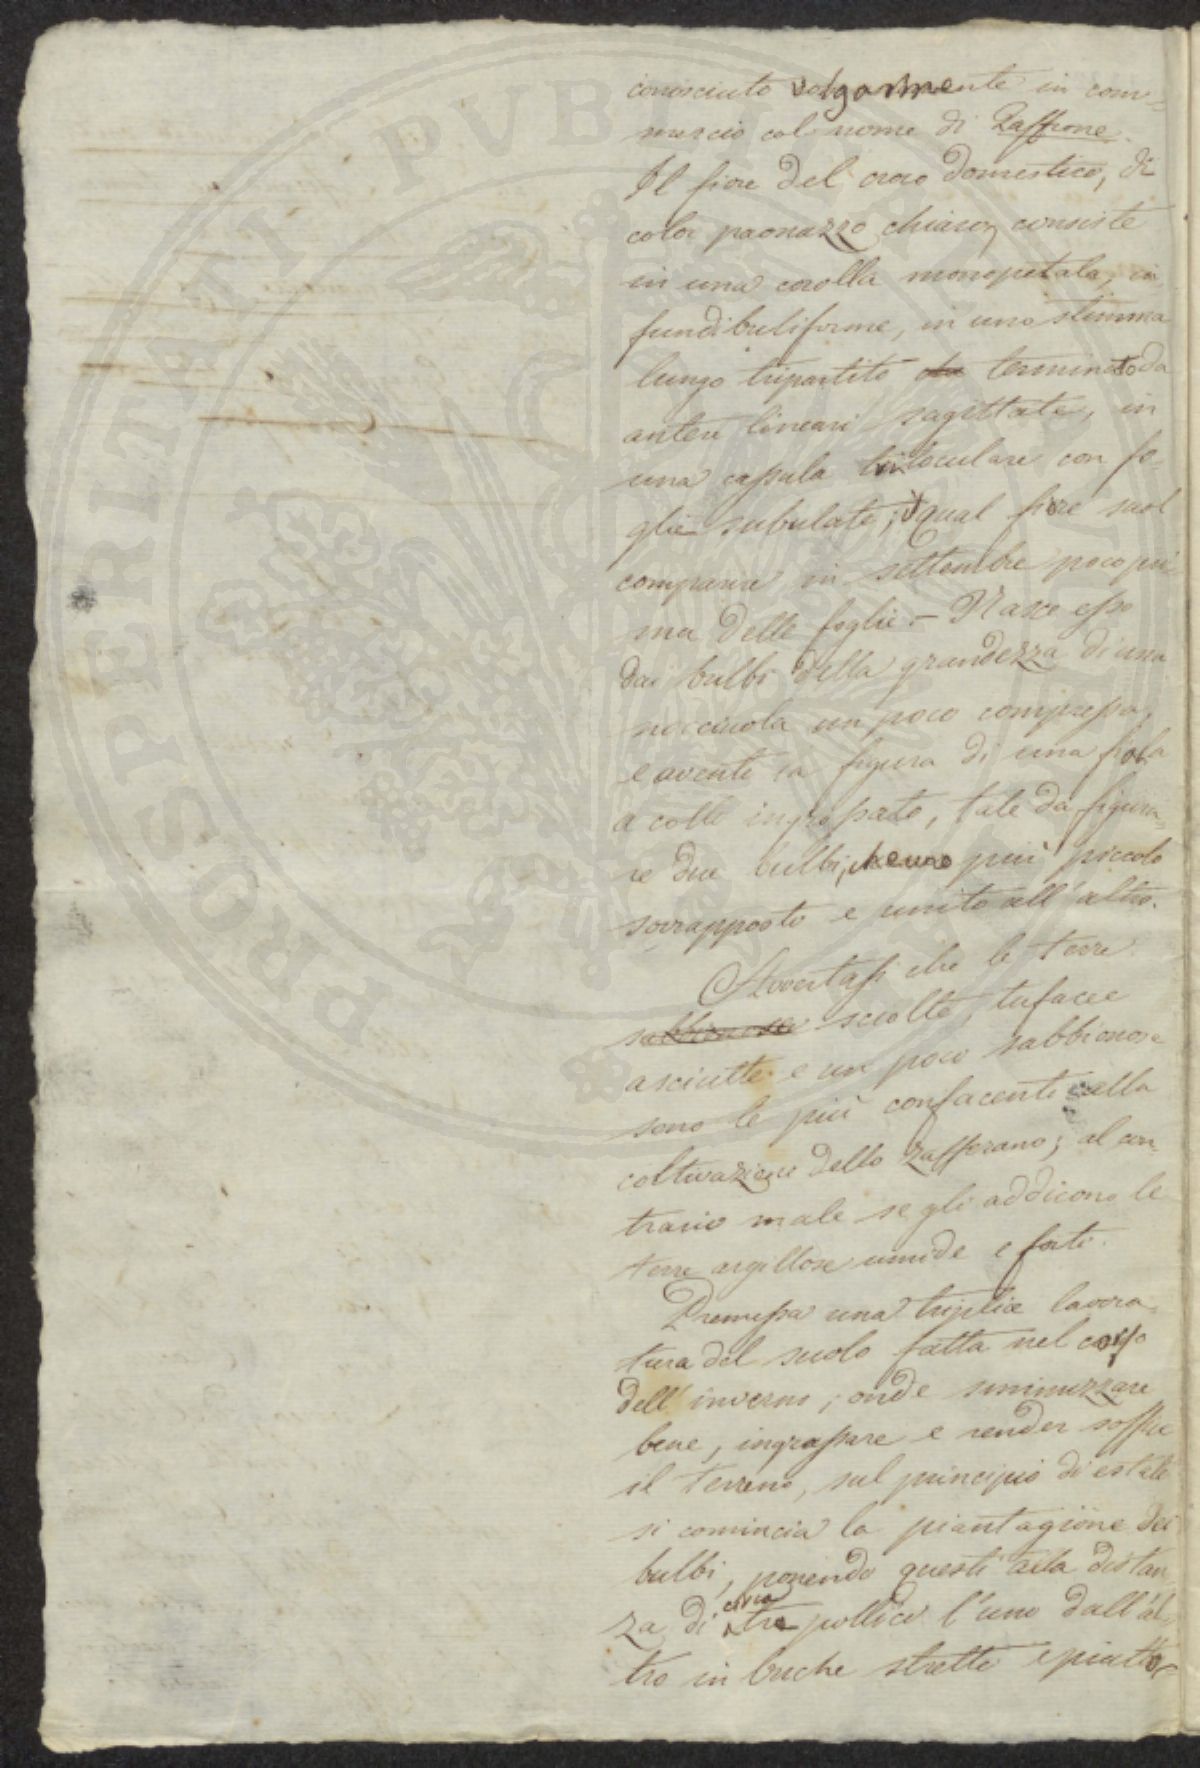 conosciuto volgarmente in com=
mercio col nome di Zaffrone.
Il fiore del croco domestico, di
color paonazzo chiaro, consiste
in una corolla monopetala, in
fundibuliforme, in uno stimma
lungo tripartito terminato da
antere lineari sagittate, in
una capsula triloculare con fo-
glie subulate; qual fiore suol
comparire in settembre poco pri
ma delle foglie. – Nasce esso
dai bulbi della grandezza di una
nocciuola un poco compressa,
e aventi la figura di una fiola
a collo ingrossato, tale da figura=
re due bulbi, che uno più piccolo
sovrapposto e unito all'altro.
Avvertasi che le terre
sabbionose sciolte, tufacee
asciutte e un poco sabbionose
sono le più confacenti alla
coltivazione dello zafferano; al con-
trario male se gli addicono le
terre argillose umide e forti.
Premessa una triplice lavora=
tura del suolo fatta nel corso
dell'inverno; onde sminuzzare
bene, ingrassare e render soffice
il terreno, sul principio di estate
si comincia la piantagione dei
bulbi, ponendo questi alla distan
za di circa tre pollici l'uno dall'al=
tro in buche strette e piutto=
PROSPERITATI PUBLICAE